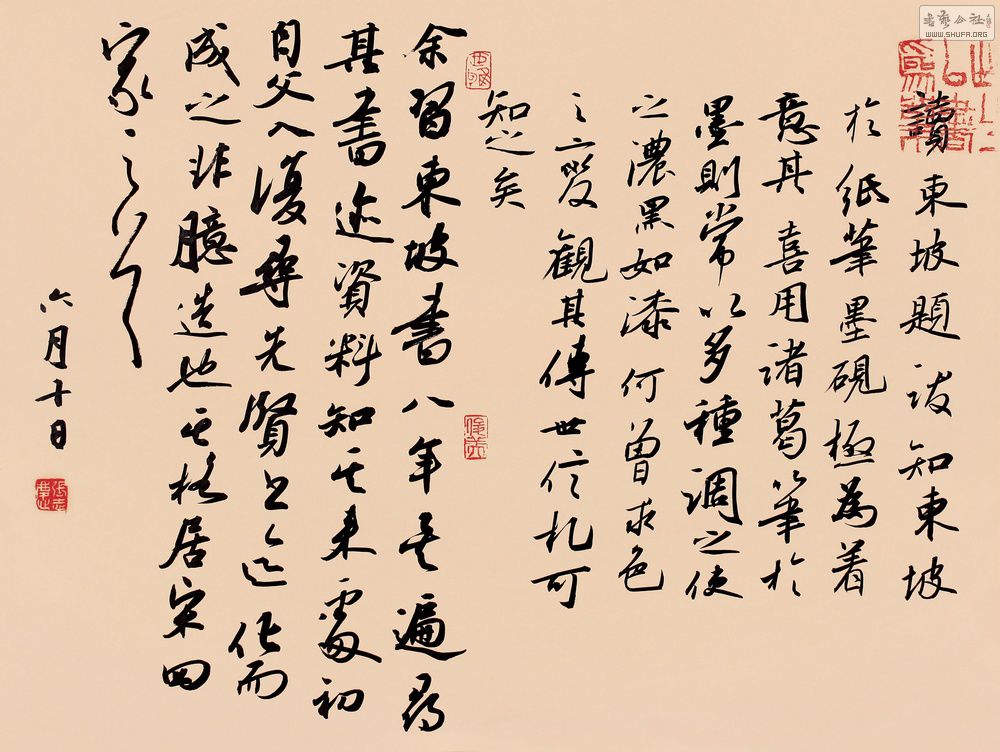 讀東坡題跋知東坡
於紙筆墨硯極為着
意其喜用諸葛筆於
墨則常以多種調之使
之濃黑如漆何曾求色
之二發觀其傳世信札可
知之矣
余習東坡書八年其遍尋
其書迹資料知其來處初
自父入復尋先賢書迹化而
成之非臆造也其格居宋四
家之首
六月十日
書藝公社
WWW.SHUFA.ORG